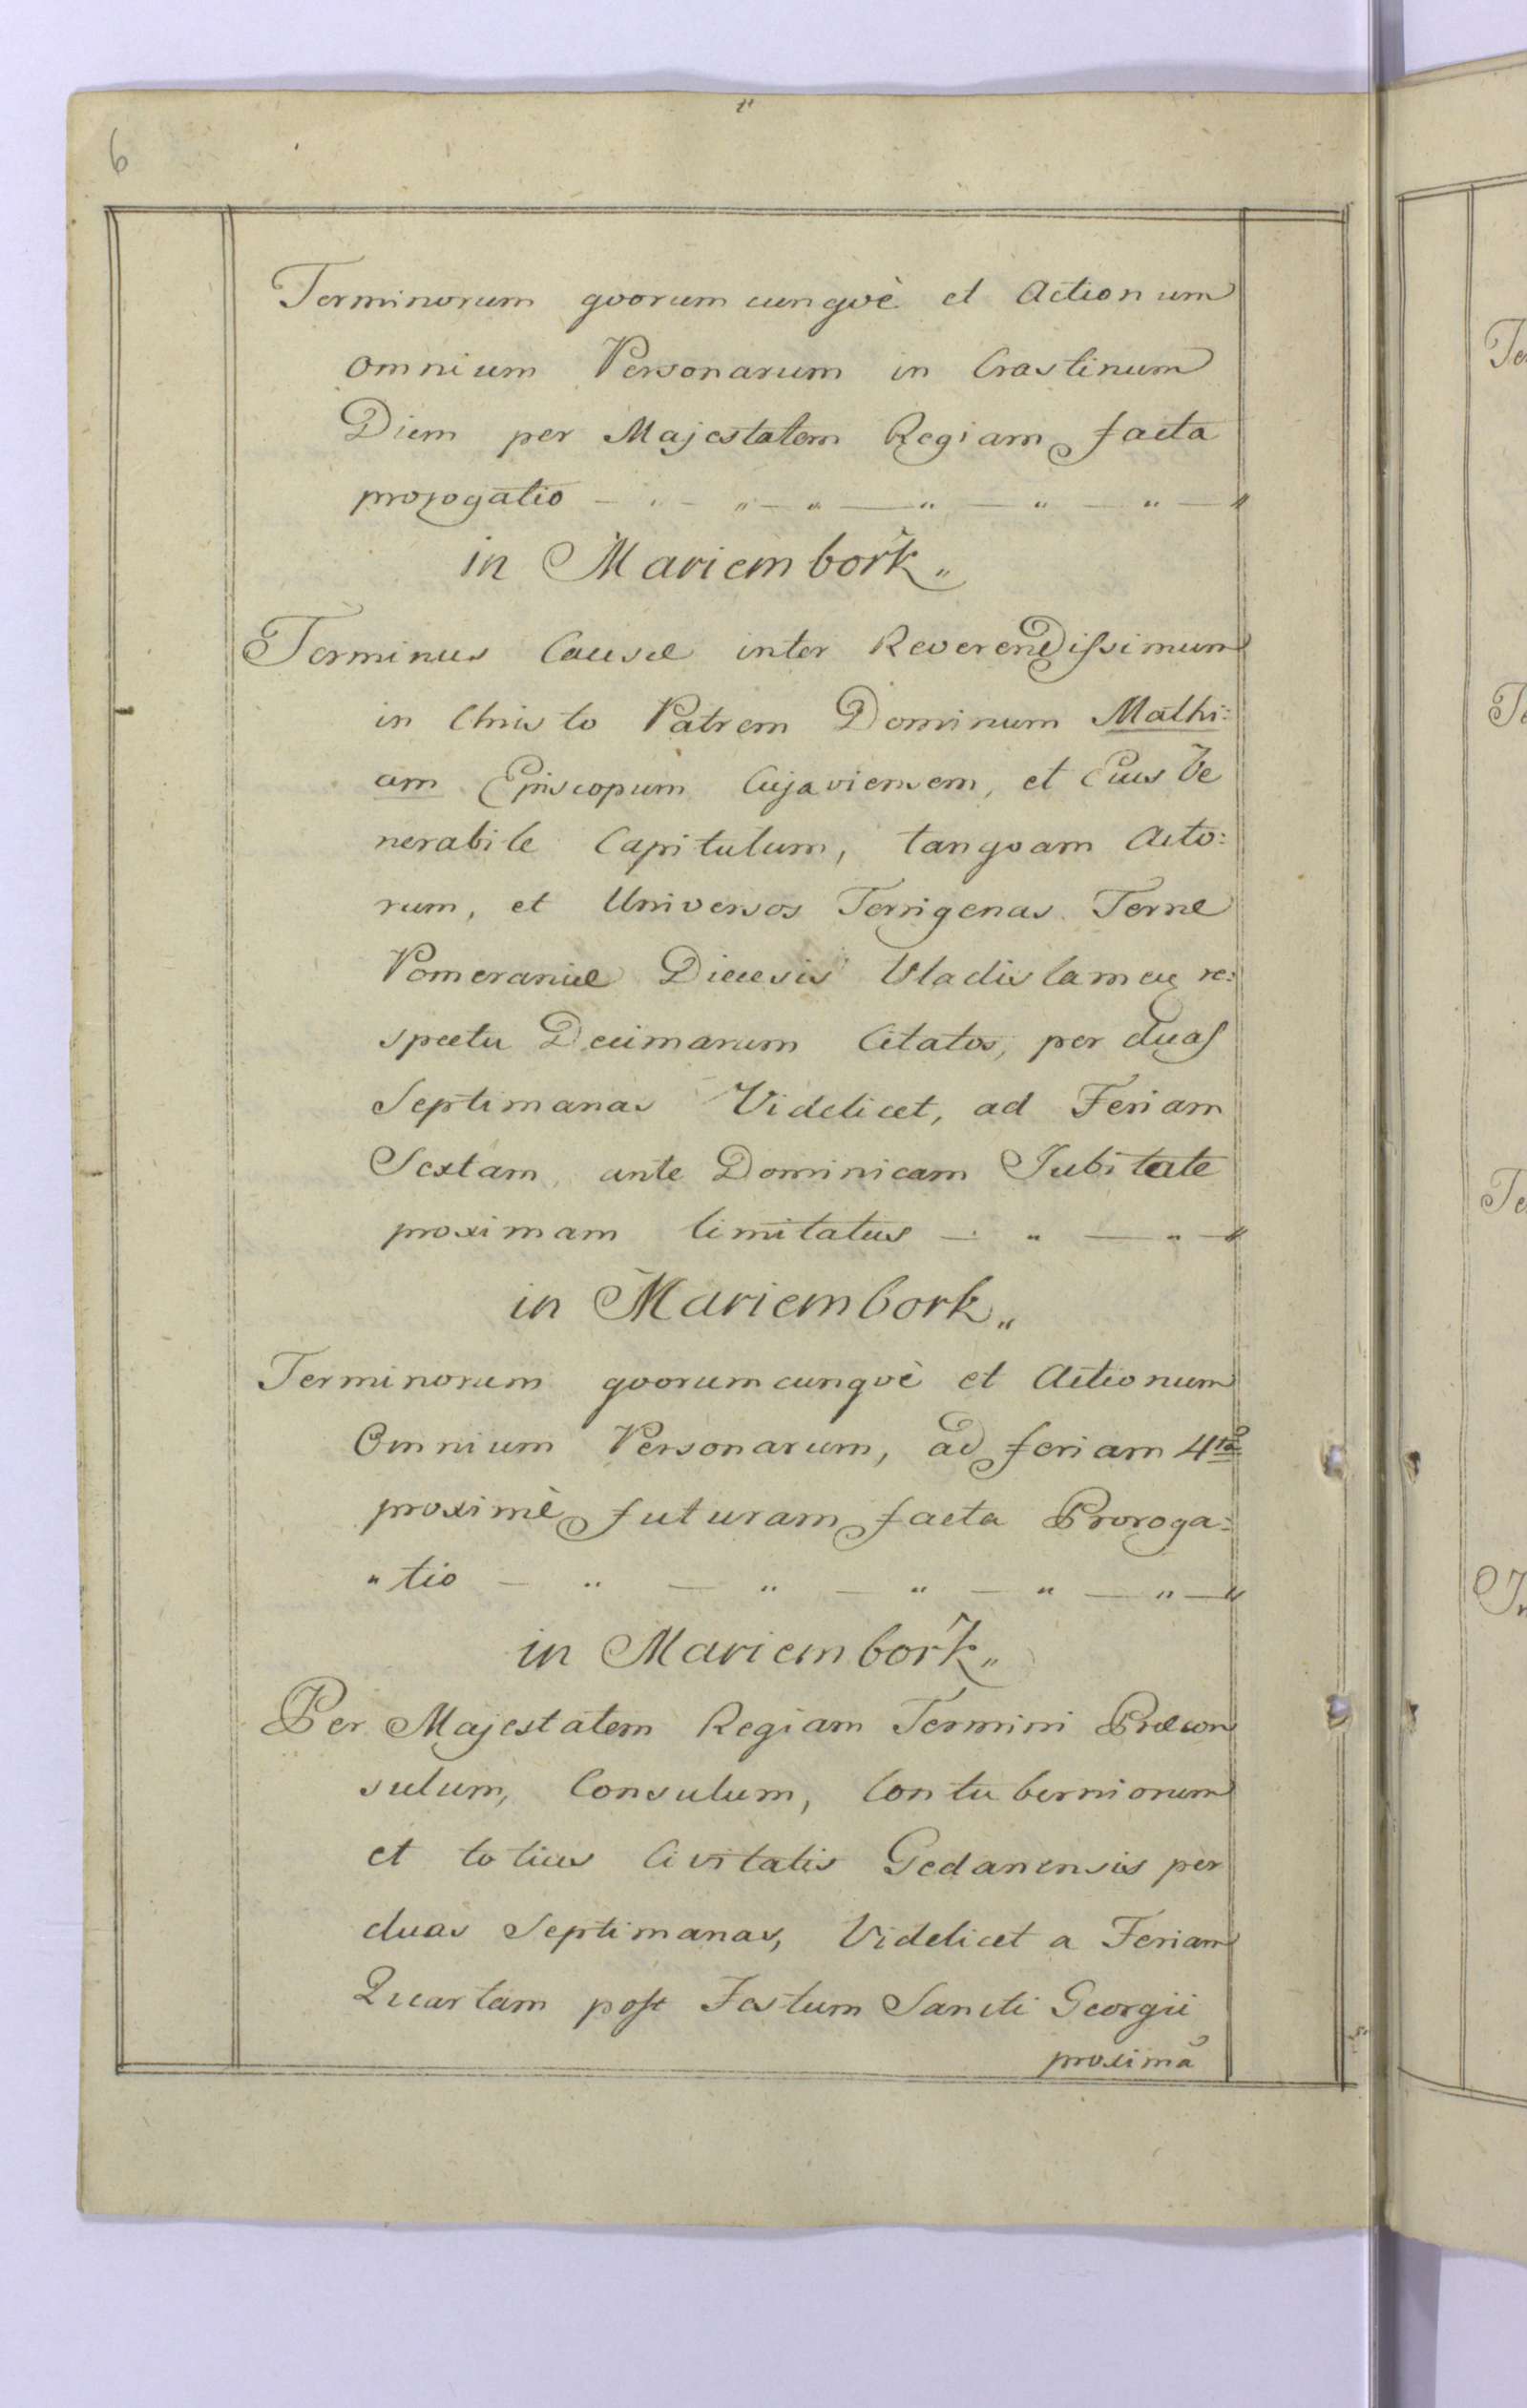 6
Terminorum qvorumcunqvè et Actionum
omnium Personarum in Crastinum
Diem per Majestatem Regiam facta
prorogatio — " — " — " — " — " — " — "
in Mariembork "
Terminus Causæ inter Reverendissimum
in Christo Patrem Dominum Mathi:
am Episcopum Cujaviensem, et Eius Ve
nerabile Capitulum, tanqvam Acto:
rum, et Universos Terrigenas Terræ
Pomeraniæ Diecesis Vladislawien re:
spectu Decimarum Citatos, per duas
Septimanas Videlicet, ad Feriam
Sextam, ante Dominicam Jubilate
proximam limitatus — " — " — "
in Mariembork "
Terminorum qvorumcunqvè et Actionum
Omnium Personarum, ad feriam 4tã
proximè futuram facta Proroga:
" tio — " — " — " — " — " — "
in Mariembork "
Per Majestatem Regiam Termini Præcon
sulum, Consulum, Contuberniorum
et totius Civitatis Gedanensis per
duas Septimanas, Videlicet a Feriam
Quartam post Festum Sancti Georgii
proximã